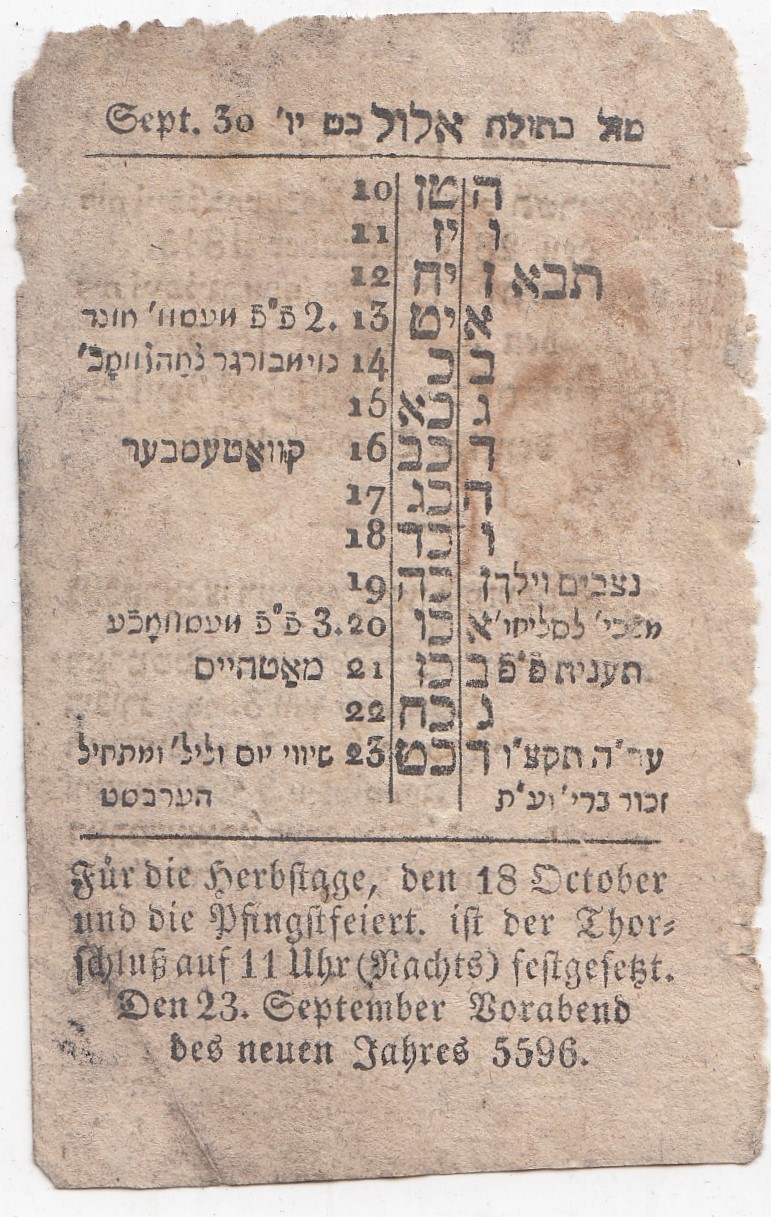 מזל בתולה אלול כט יו' Sept. 30
ה טו 10
ו יז 11
תבא ז יח 12
א יט 13 2. פ"פ מעסמ' מונד
ב כ 14
ג כא 15
ד כב 16 קוואטעמבער
ה כג 17
ו כד 18
נצבים וילך ז כה 19
א כו 20 3. פ"פ
תענית פ"פ ב כז 21 מאטהיים
ג כח 22
ער"ה תקצ"ו ד כט 23 שיווי יום וליל' ומתחיל
זכור ברי' וע"ת הערבסט
Für die Herbstage, den 18 October
und die Pfingstfeiert. ist der Thor⸗
schluß auf 11 Uhr (Nachts) festgesetzt.
Den 23. September Vorabend
des neuen Jahres 5596.